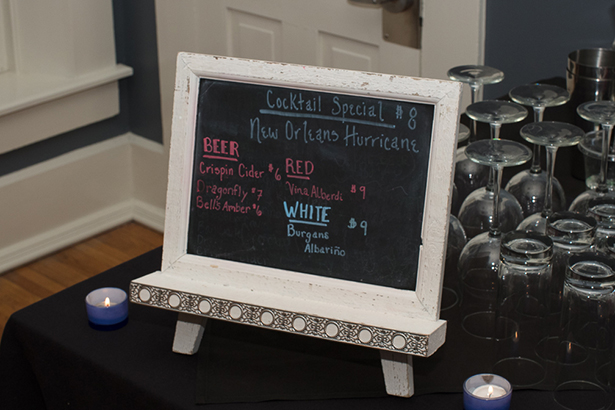 Cocktail Special $8
New Orleans Hurricane
BEER
Crispin Cider $6
Dragonfly $7
Bells Amber $6
RED
Vina Alberdi $9
WHITE $9
Burgans
Albariño